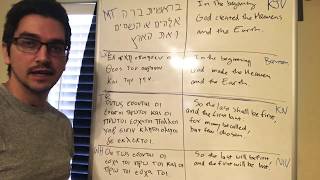 בראשית ברה MT
אלהים א השמים
ואת הארץ
In the beginning KJV
God created the Heavens
and the Earth
Θεος τον ουρανον
και την γην
In the beginning Brenton
God made the Heavens
and the Earth
Ουτως εσονται οι
εσχατοι πρωτοι και οι
πρωτοι εσχατοι πολλοι
γαρ εισιν κλητοι ολιγοι
δε εκλεκτοι.
So the last shall be first, KJV
and the first last:
for many be called,
but few chosen.
WH Ουτως εσονται οι
εσχατοι πρωτοι και οι
πρωτοι εσχατοι.
So the last will be first NIV
and the first will be last.